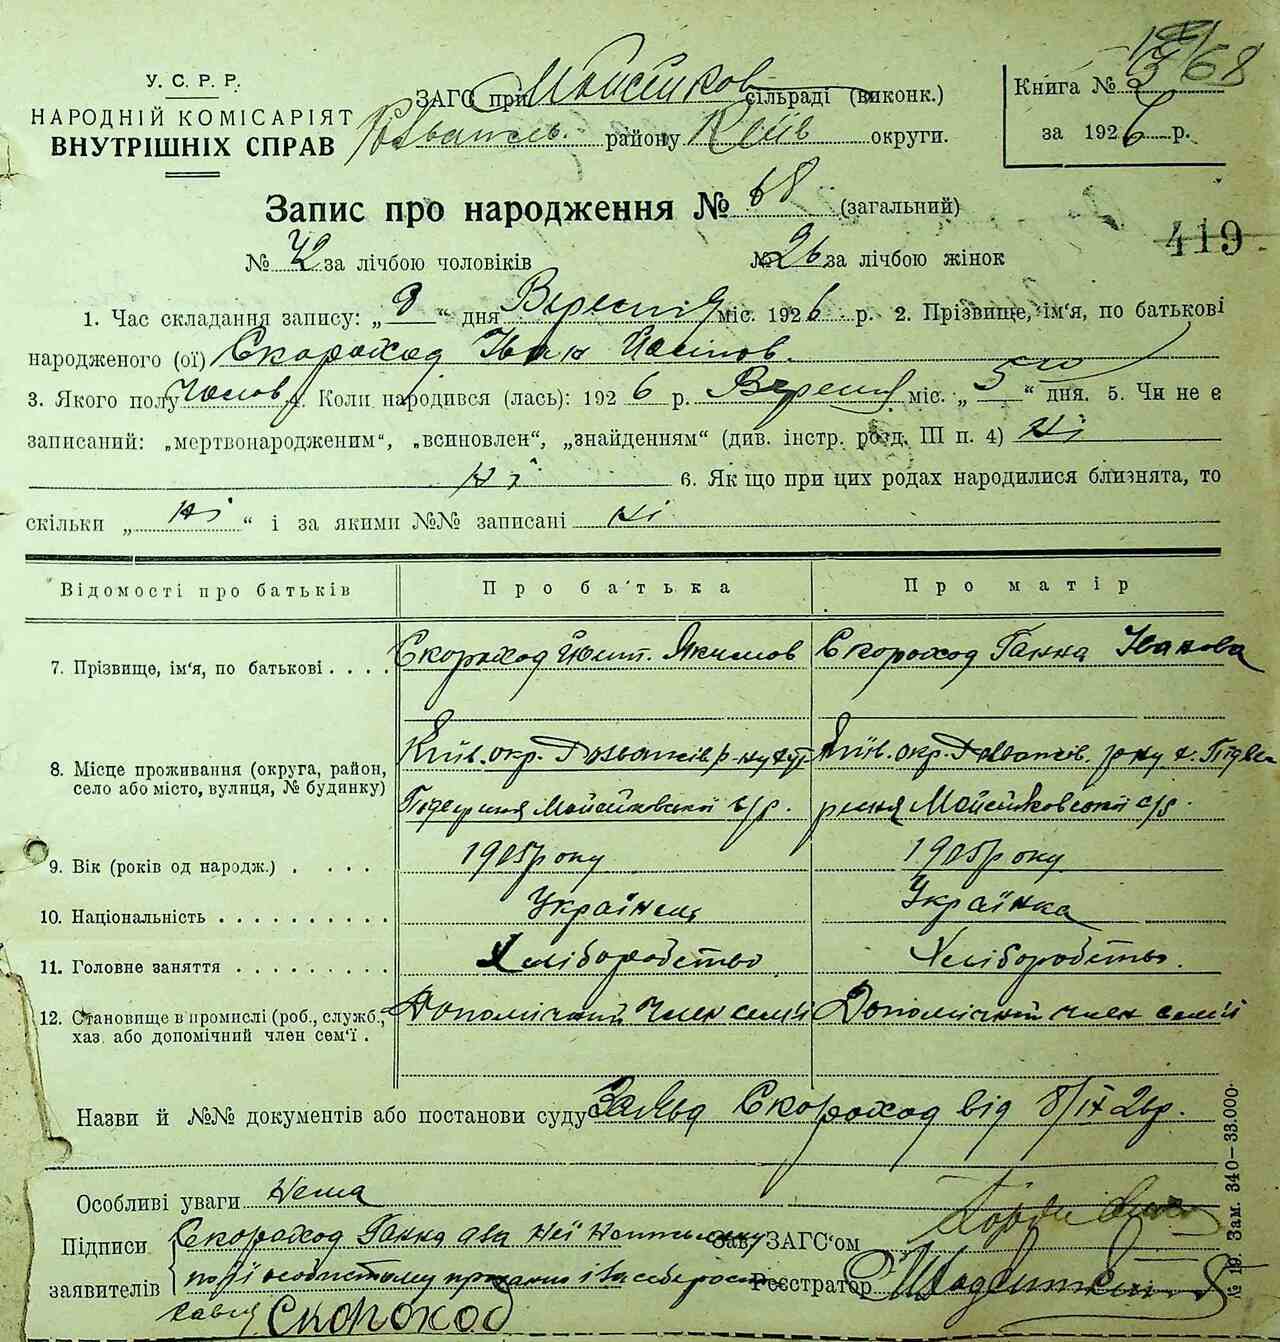 У. С. Р. Р.
НАРОДНІЙ КОМІСАРІЯТ
ВНУТРІШНІХ СПРАВ
ЗАГС при Мойсійков сільраді (виконк.)
району Київ округи.
Книга № 3 68
за 1926 р.
Запис про народження № 68 (загальний)
№ 42 за лічбою чоловіків № 26 за лічбою жінок
419
1. Час складання запису: „ 8 “ дня Вересня міс. 1926 р. 2. Прізвище, ім'я, по батькові
народженого (ої) Скороход Іван Йосипов.
3. Якого полу Чолов. 4. Коли народився (лась): 1926 р. Вересня міс. „ 5 “ дня. 5. Чи не є
записаний: „мертвонародженим“, „всиновлен“, „знайденням“ (див. інстр. розд. III п. 4) Ні
Ні 6. Як що при цих родах народилися близнята, то
скільки „ Ні “ і за якими №№ записані Ні
Відомості про батьків Про батька Про матір
7. Прізвище, ім'я, по батькові . . . . Скороход Йосип. Якимов Скороход Ганна Іванова
8. Місце проживання (округа, район, село або місто, вулиця, № будинку) Київ. окр. р-ну Мойсійковської с/р. Київ. окр. р-ну х. Мойсійковської с/р.
9. Вік (років од народж.) . . . . 1905 року 1905 року
10. Національність . . . . . . . . . . Українець Українка
11. Головне заняття . . . . . . . . . Хліборобство Хліборобство.
12. Становище в промислі (роб., служб., хаз. або допомічний член сем'ї . Допомічний член семї Допомічний член семї
Назви й №№ документів або постанови суду Заява Скороход від 8/IX 26р.
Особливі уваги Нема
Підписи заявителів Скороход Ганна а за неї
по її особистому проханню і за себе
Скороход
Зав. ЗАГС'ом
Реєстратор
№ 19. Зам. 340—33.000.